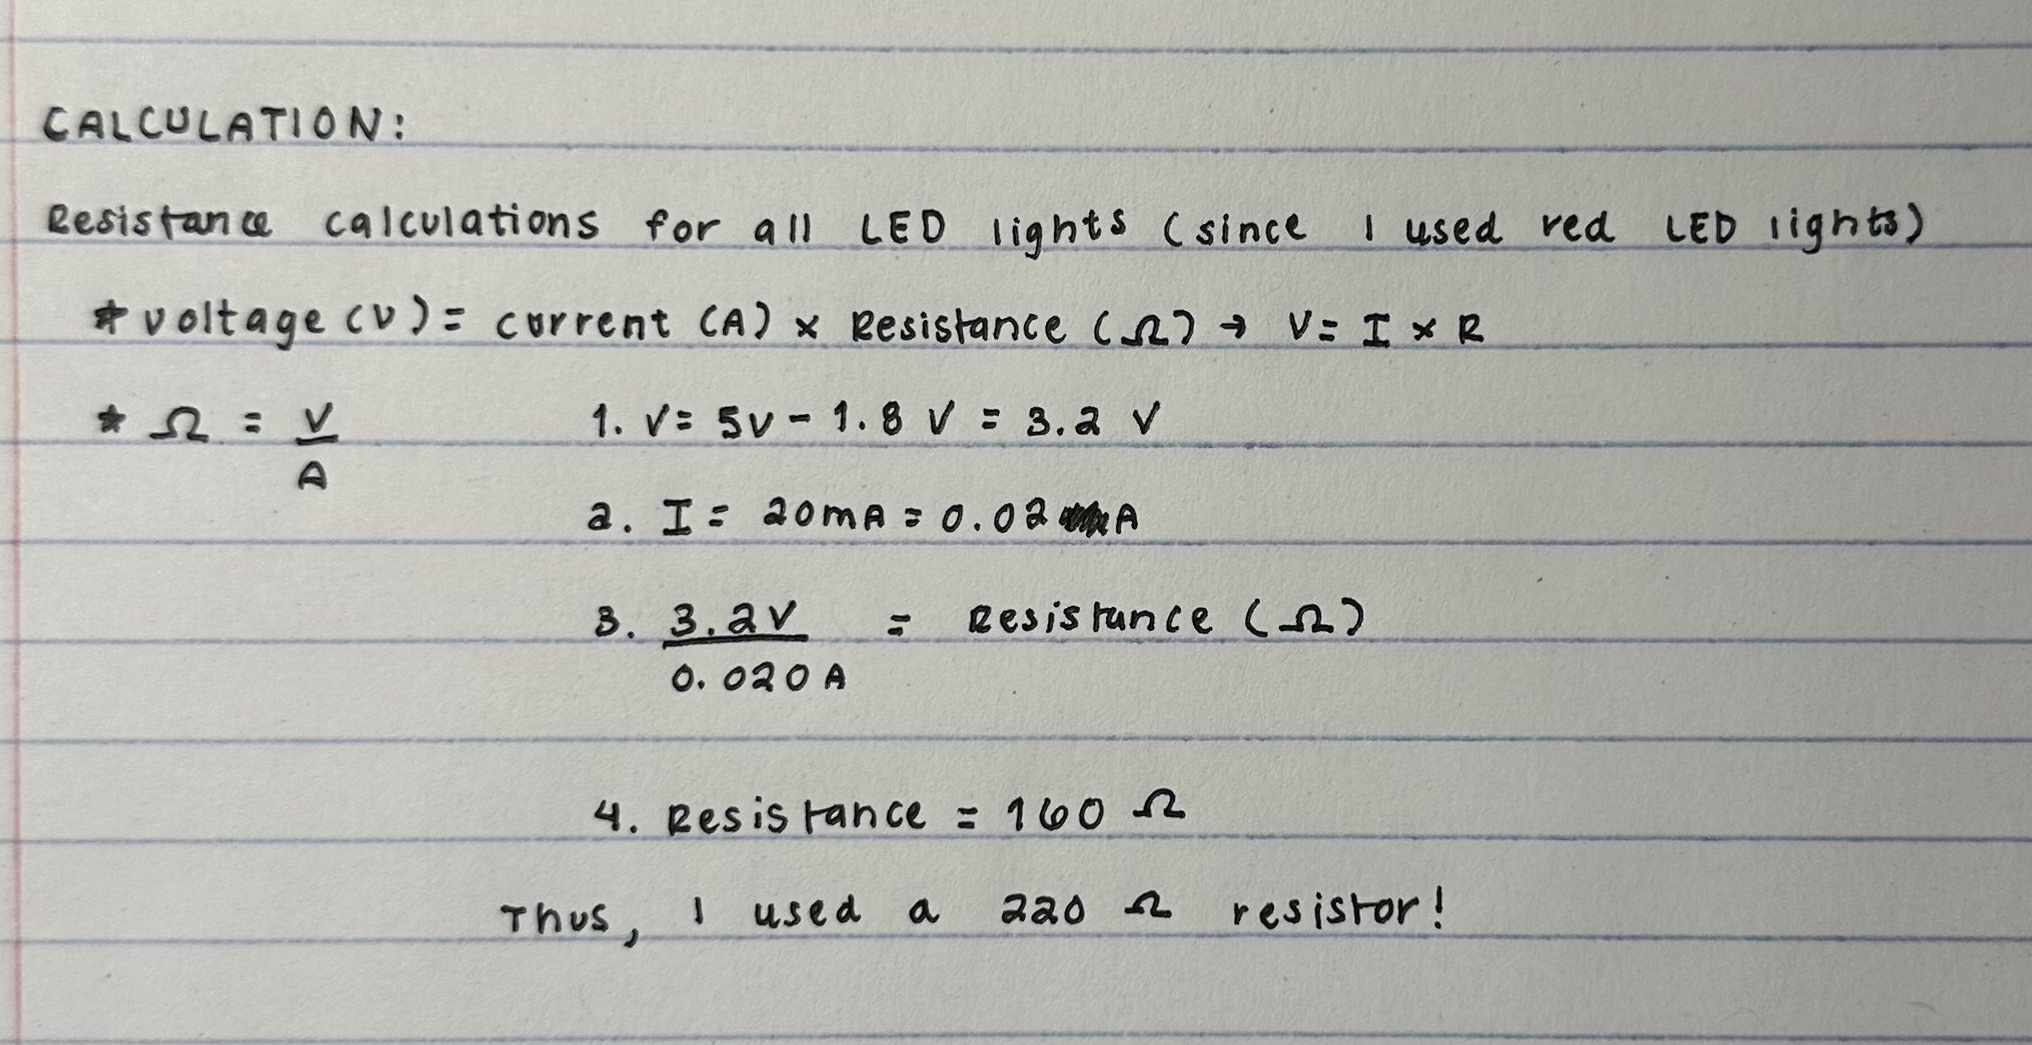 CALCULATION:
Resistance calculations for all LED lights (since I used red LED lights)
* voltage (V) = current (A) × Resistance (Ω) → V = I × R
* Ω = V/A
1. V = 5V - 1.8 V = 3.2 V
2. I = 20mA = 0.02 A
3. 3.2V/0.020A = Resistance (Ω)
4. Resistance = 160 Ω
Thus, I used a 220 Ω resistor!